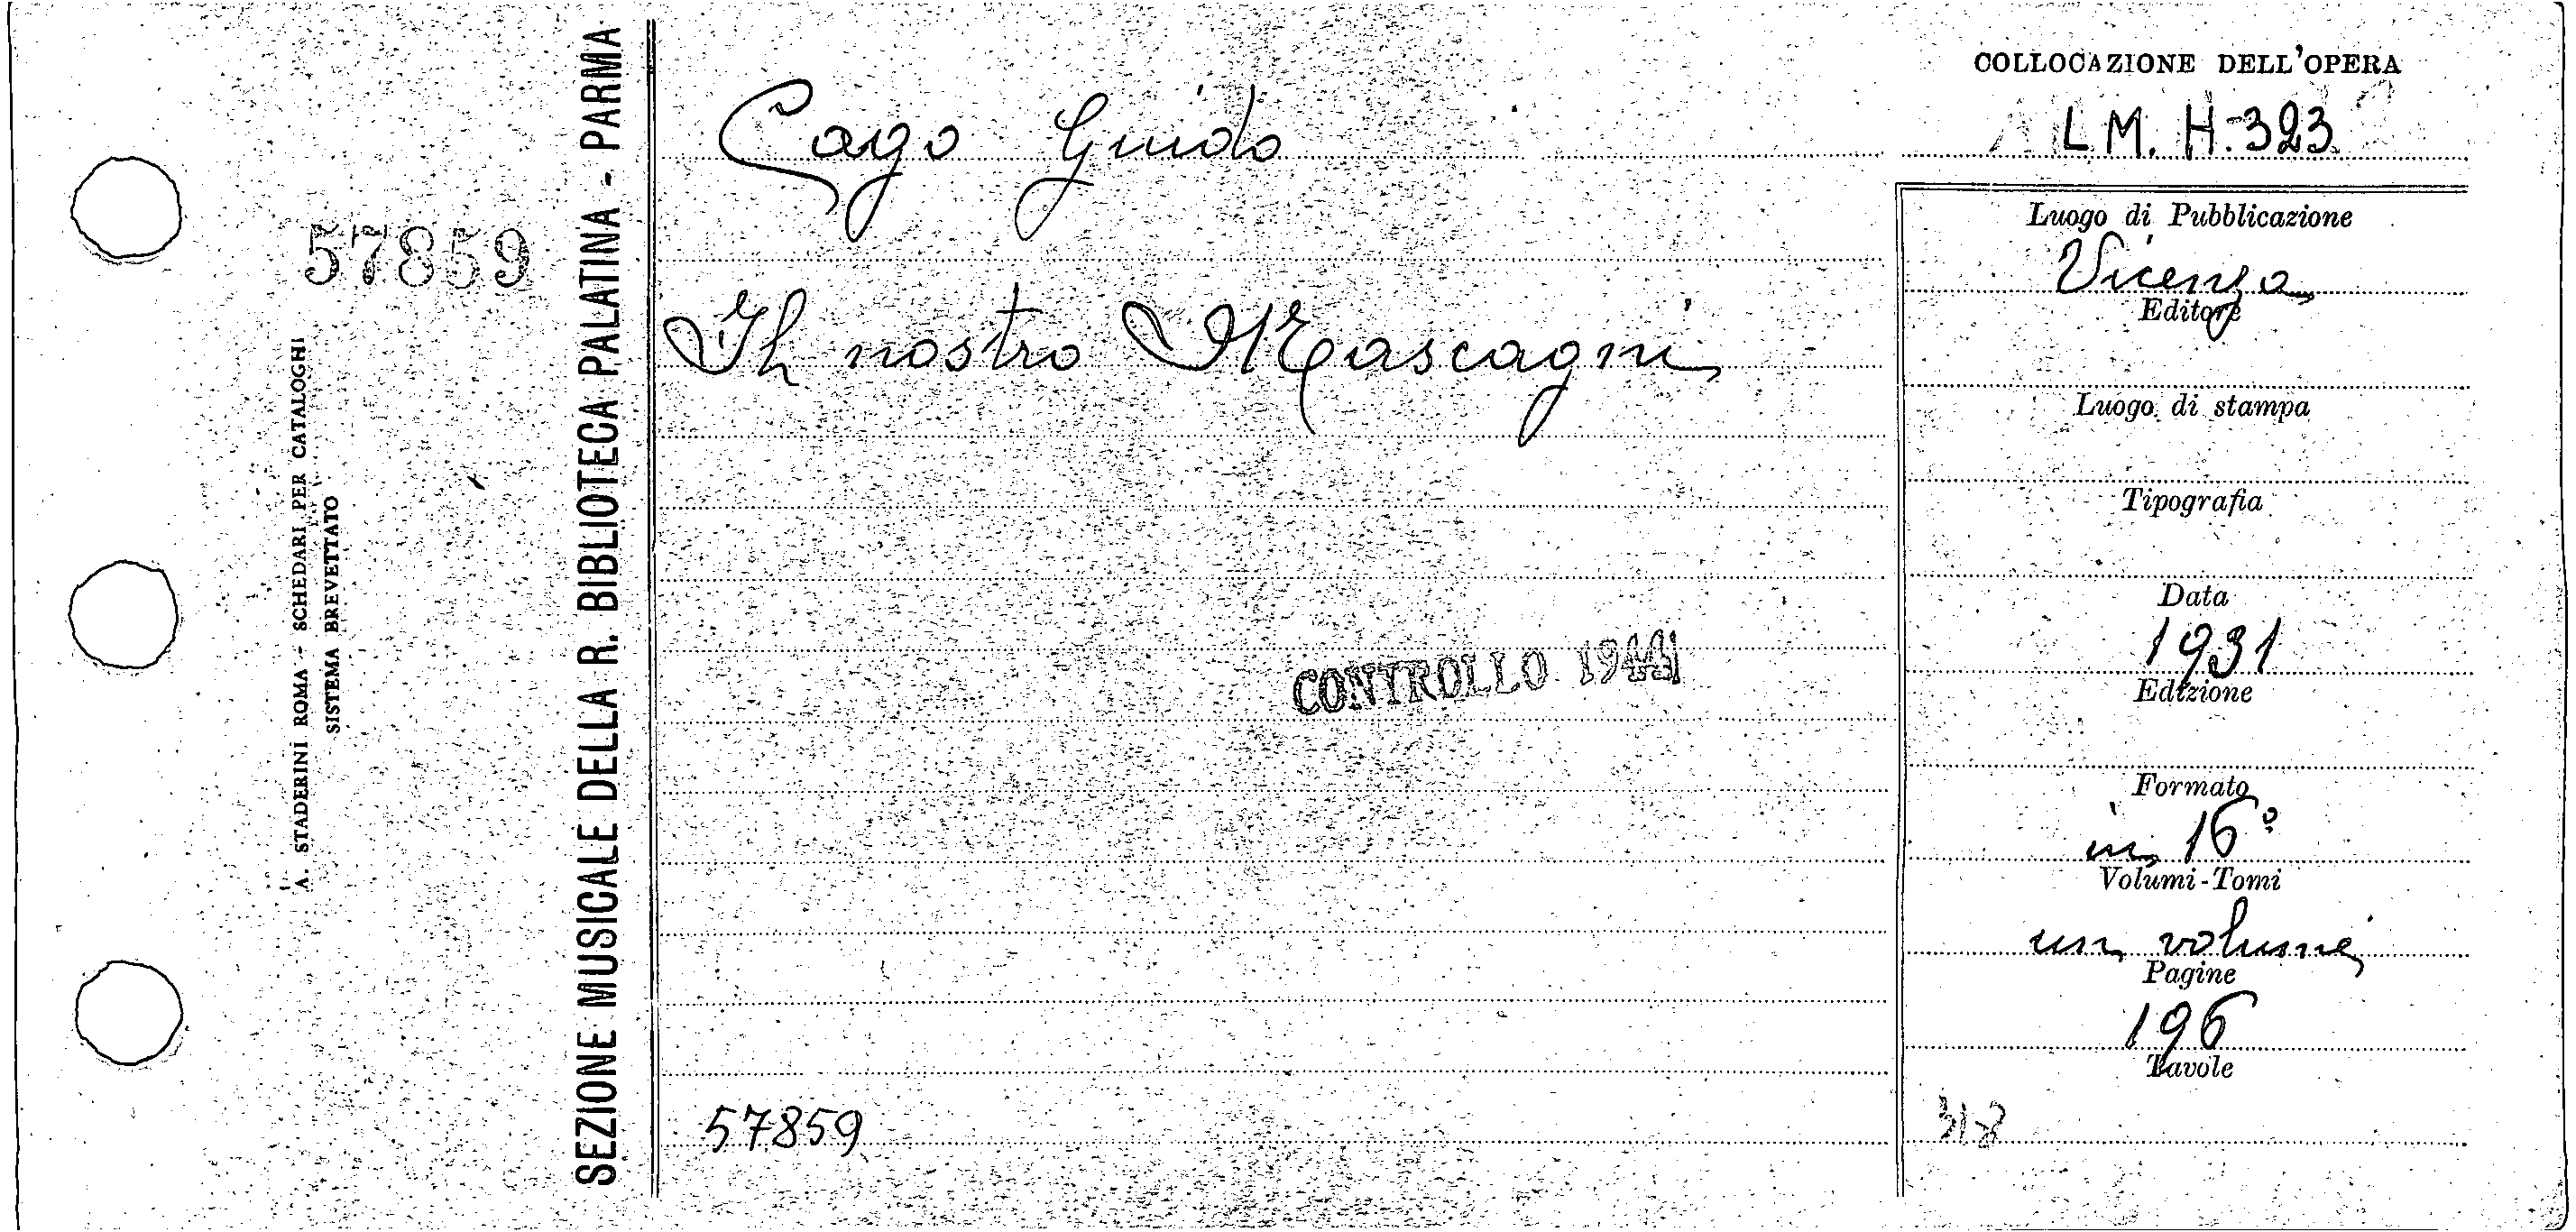 57859
A. STADERINI ROMA - SCHEDARI PER CATALOGHI
SISTEMA BREVETTATO
SEZIONE MUSICALE DELLA R. BIBLIOTECA PALATINA - PARMA
Cogo Guido
Il nostro Mascagni
CONTROLLO
57859
COLLOCAZIONE DELL'OPERA
L M. H. 323
Luogo di Pubblicazione
Vicenza
Editore
Luogo di stampa
Tipografia
Data
1931
Edizione
Formato
in 16º
Volumi-Tomi
un volume
Pagine
196
Tavole